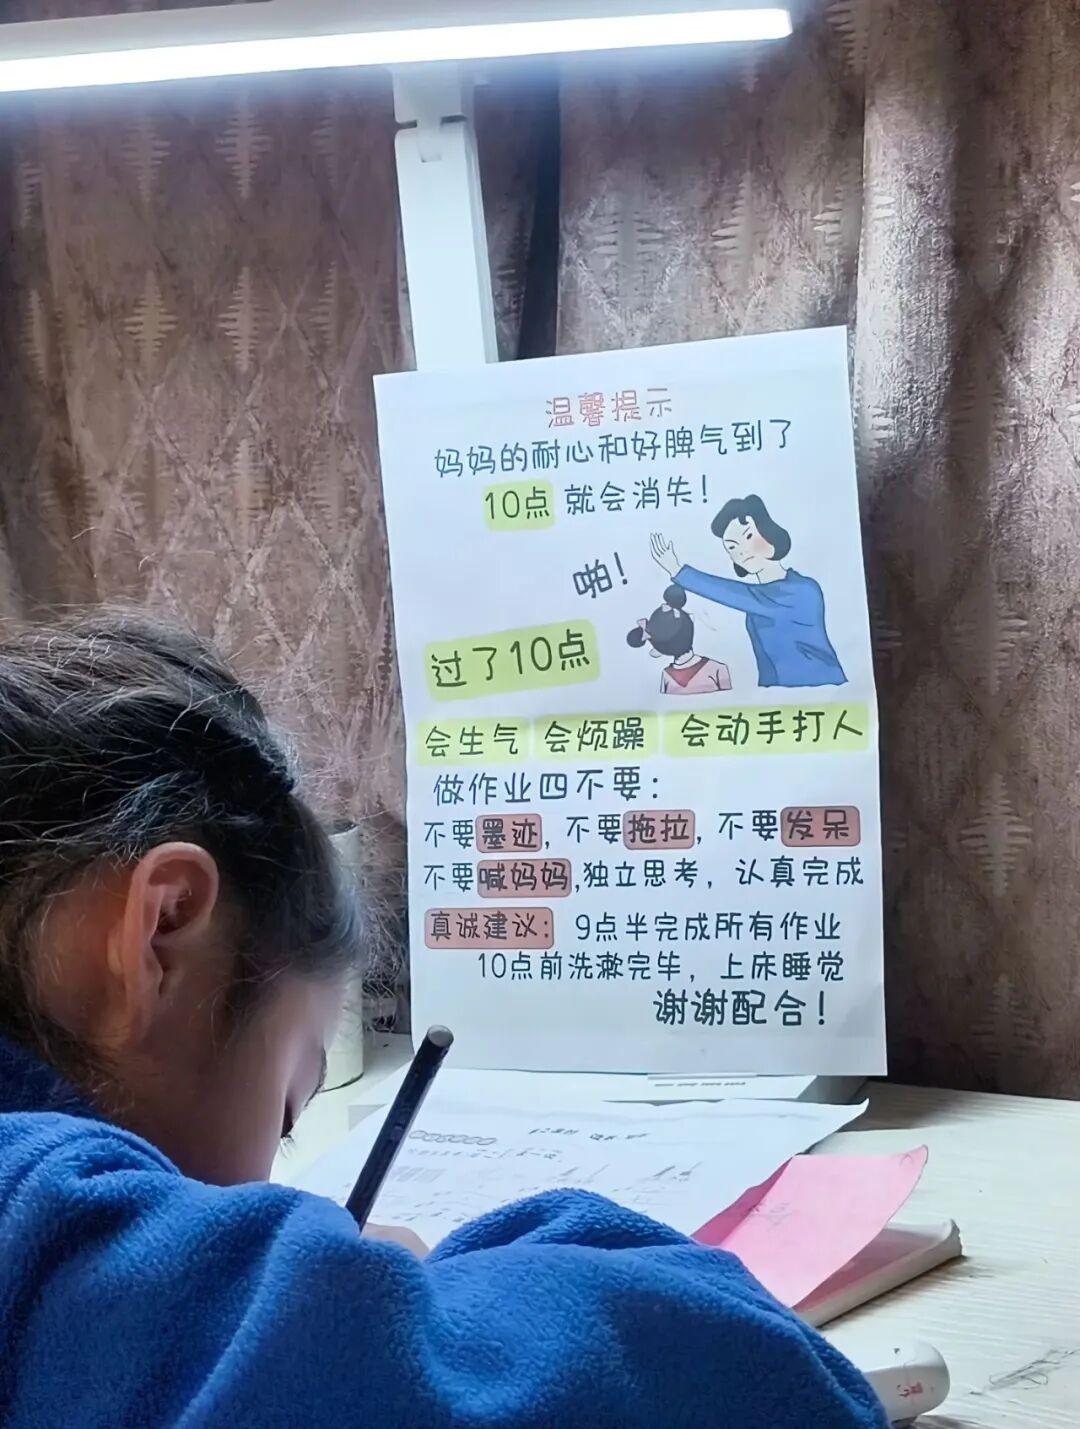 温馨提示
妈妈的耐心和好脾气到了
10点 就会消失！
啪！
过了10点
会生气 会烦躁 会动手打人
做作业四不要：
不要墨迹，不要拖拉，不要发呆
不要喊妈妈，独立思考，认真完成
真诚建议：9点半完成所有作业
10点前洗漱完毕，上床睡觉
谢谢配合！